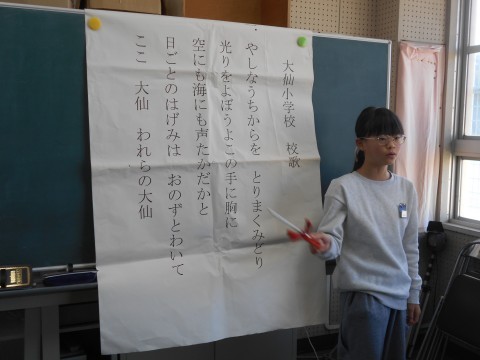 大仙小学校　校歌
やしなうちからを　とりまくみどり
光りをよぼうよこの手に胸に
空にも海にも声たかだかと
日ごとのはげみは　おのずとわいて
ここ　大仙　われらの大仙